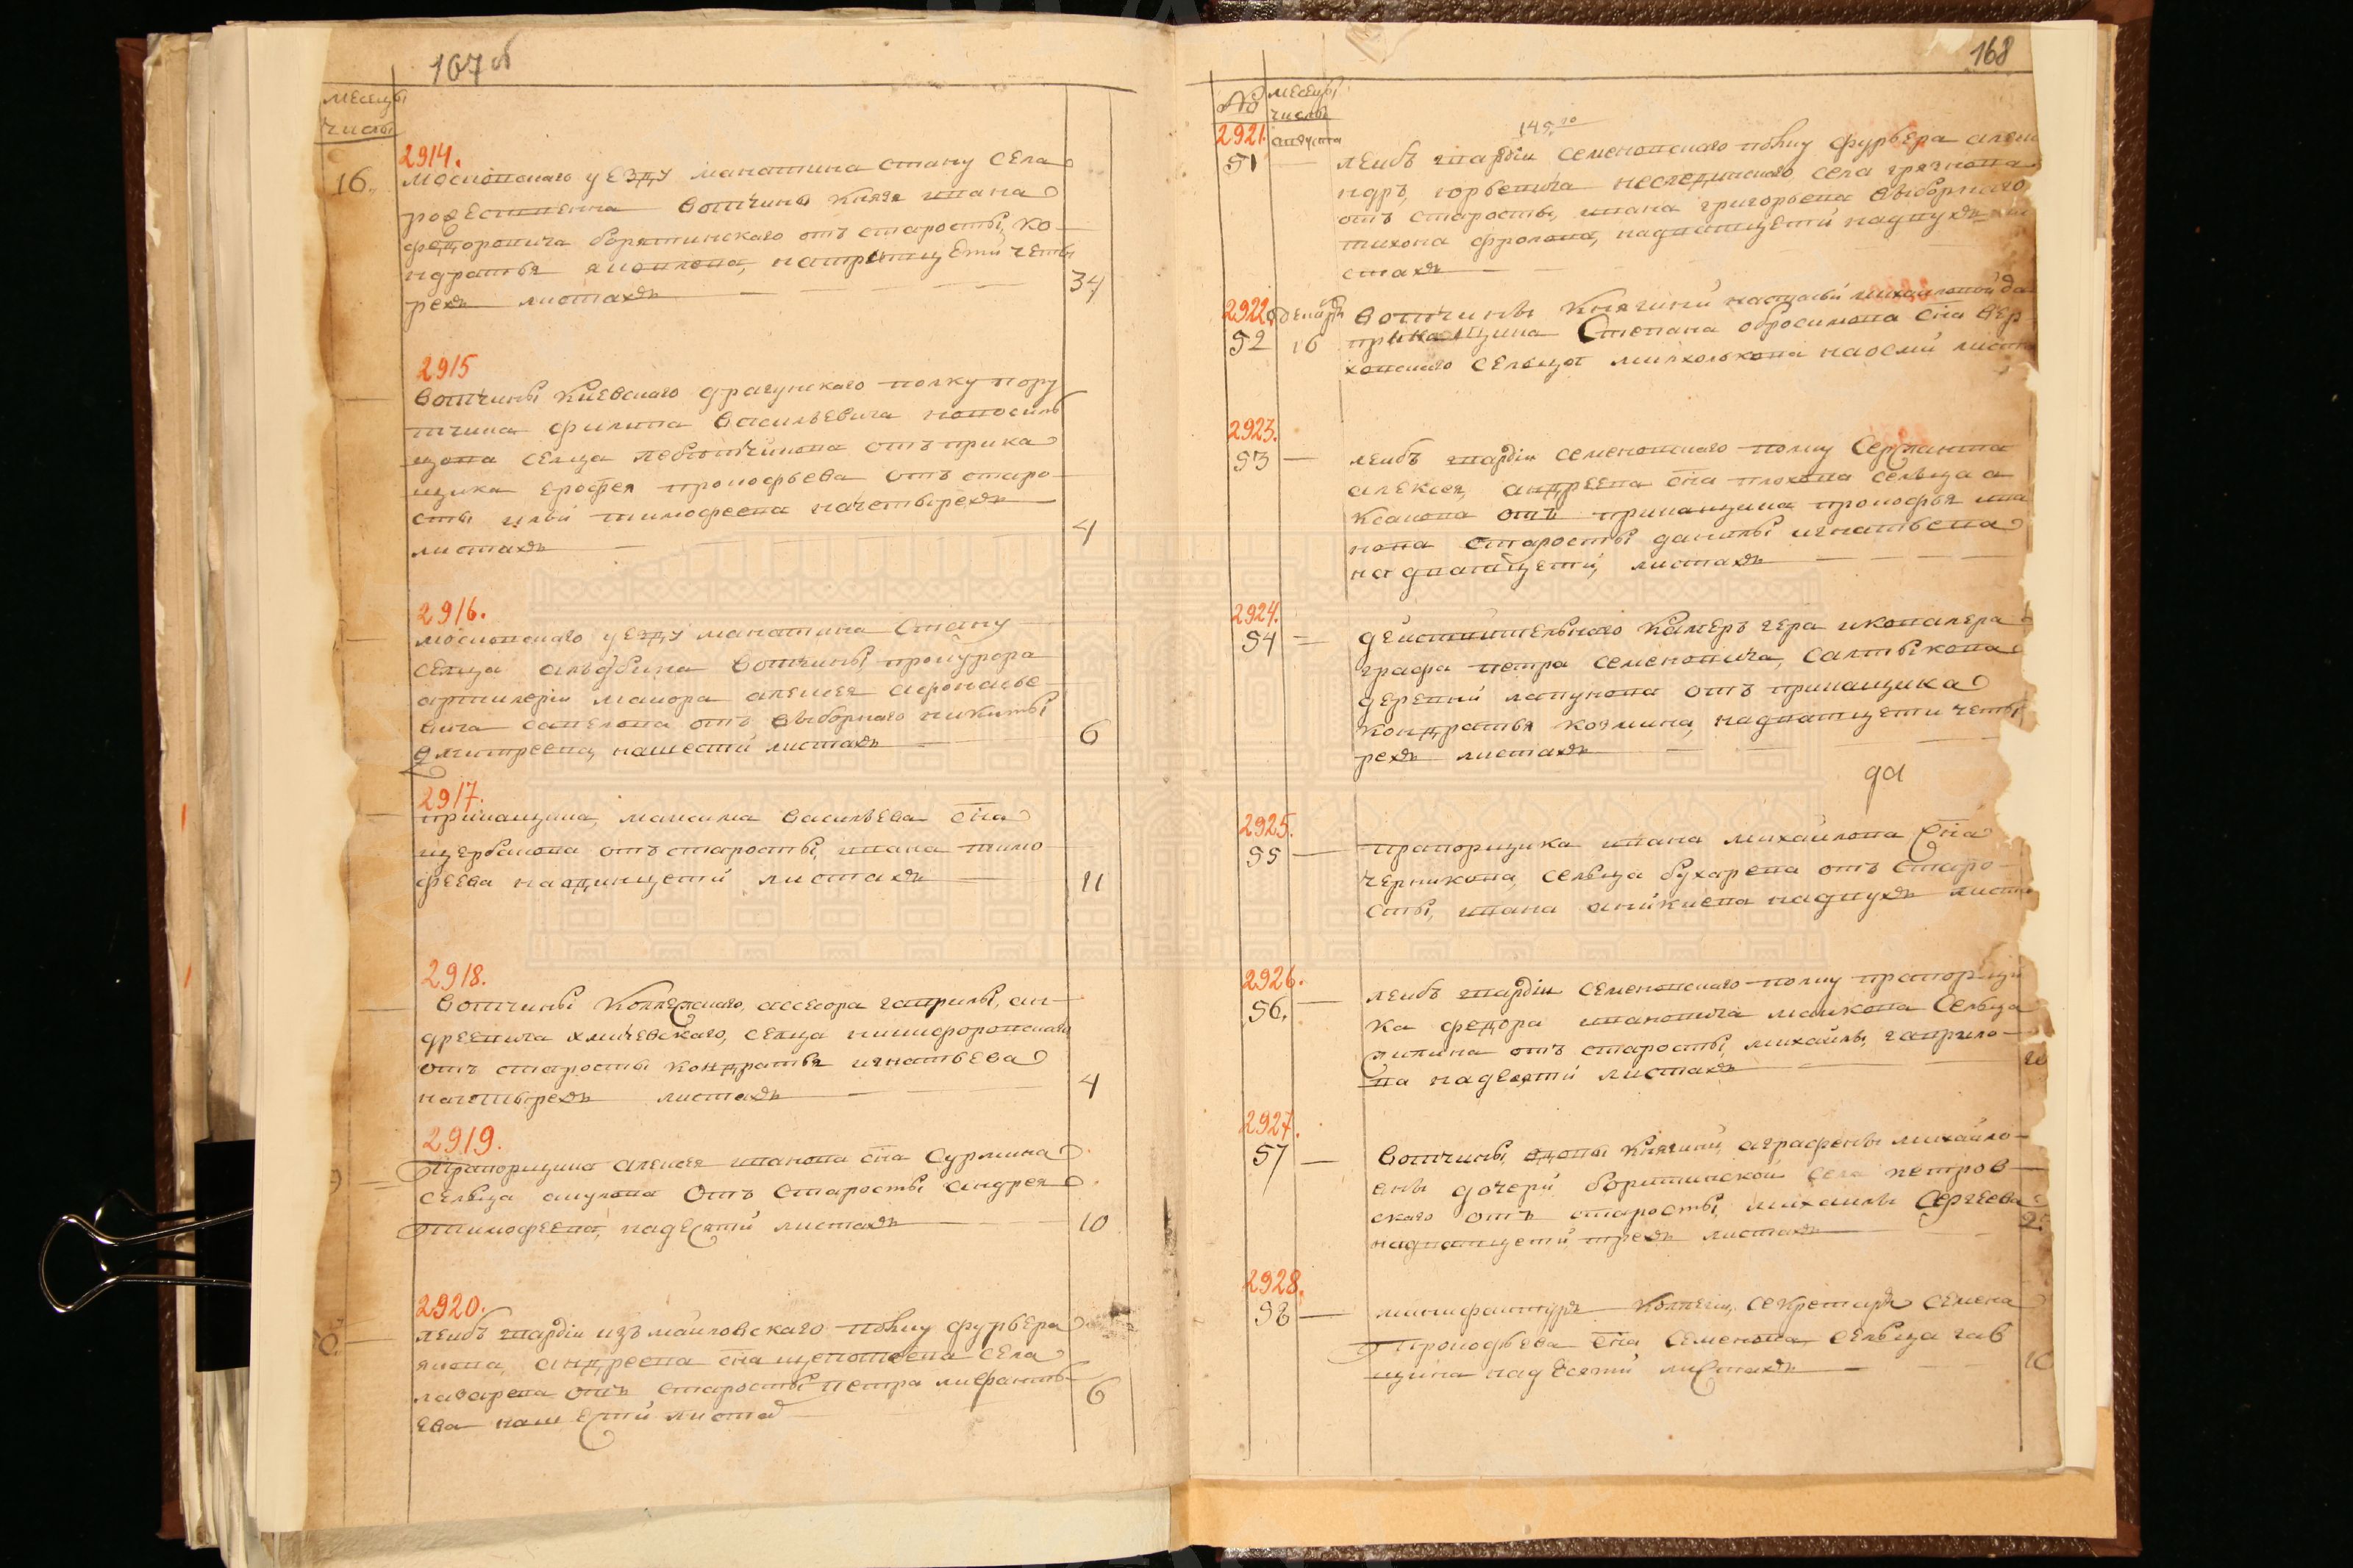 167 об
месецы
числы
16
2914.
московского уезду манатина стану села
рожественна вотчины князя ивана
федоровича борятинского отъ старосты ко
ндратья яковлева, натритцети четы
рехъ листахъ
34
2915
вотчины киевского драгунского полку пору
тчика филипа васильевича новосиль
цова селца отъ прика
щика ерофея прокофьева отъ старо
сты ильи тимофеева начетырехъ
листахъ
4
2916.
московского уезду манатина стану
селца вотчины прокурора
артилерии маиора алексея афонасье
вича савелова отъ выборного никиты
дмитреева, нашести листахъ
6
2917.
прикащика, максима васильева сна
щербакова отъ старосты, ивана тимо
феева наодинцети листахъ
11
2918.
вотчины коллежского, ассесора гаврилы, ан
дреевича хмичевского, селца никифоровского
отъ старосты кондратья игнатьева
начетырехъ листахъ
4
2919.
прапорщика алексея иванова сна сурмина
сельца акулова отъ старосты андрея
тимофеева, надесяти листахъ
10
2920.
леибъ гвардии измаиловского полку фурьера
якова, андреева сна щепотьева села
лазарева отъ старосты петра
ева нашести листа
6
168
№
месецы
числы
145
2921.
августа
51
леибъ гвардии семеновского полку фурьера алекса
ндръ, юрьевича несвединского села грязнова
отъ старосты, ивана григорьева выборного
тихона фролова, надватцети надвухъ ли
стахъ
2922.
52
16
вотчины княгини настасьи михаиловой до
прикащика степана обросимова сна вер
ховского сельца михолькова наосми листа
2923.
53
леибъ гвардии семеновского полку сержанта
алексея, андреева сна плохова сельца а
ксанова отъ прикащика прокофья ива
нова старосты данилы игнатьева
на дватцети, листахъ
2924.
54
действительного камеръ гера иковалера
графа петра семеновича, салтыкова
деревни лапунова отъ прикащика
кондратья козмина, надватцети четы
рехъ листахъ
2925.
55
прапорщика ивана михаилова сна
черникова, сельца бухарева отъ старо
сты, ивана аникиева надвухъ листа
2926.
56.
леибъ гвардии семеновского полку прапорщи
ка федора ивановича маикова сельца
липина отъ старосты, михаилы, гаврило
ва надесяти листахъ
10
2927.
57
вотчины, вдовы княгини, аграфены михаило
вны дочери борятинской села петров
ского отъ старосты, михаилы сергеева
надватцети трехъ листахъ
2
2928.
58
мануфактуръ коллегии, секретаря семена
прокофьева сна, семенова, сельца гав
щина надесяти листахъ
10